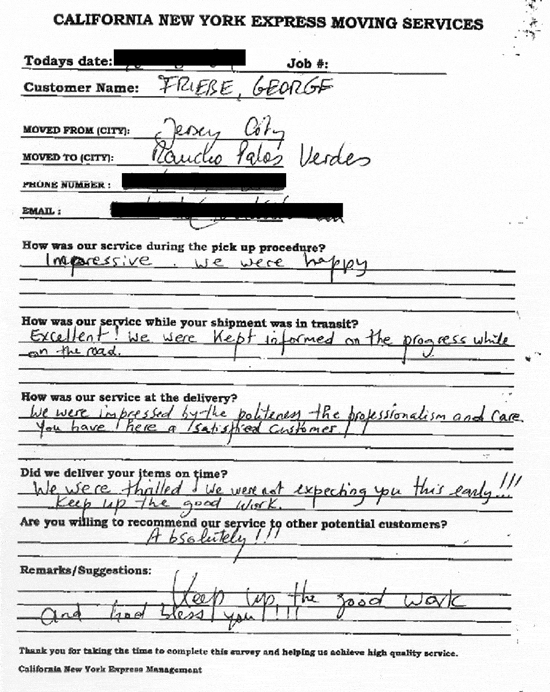 CALIFORNIA NEW YORK EXPRESS MOVING SERVICES
Todays date: Job #:
Customer Name: FRIEBE, GEORGE
MOVED FROM (CITY): Jersey City
MOVED TO (CITY): Rancho Palos Verdes
PHONE NUMBER :
EMAIL :
How was our service during the pick up procedure?
Impressive. We were happy
How was our service while your shipment was in transit?
Excellent! We were Kept informed on the progress while
on the road.
How was our service at the delivery?
We were impressed by the politeness the professionalism and Care.
You have here a satisfied Customer!
Did we deliver your items on time?
We were thrilled! We were not expecting you this early...!!!
Keep up the good work.
Are you willing to recommend our service to other potential customers?
Absolutely!!!
Remarks/Suggestions:
Keep up the good work
And God bless you!!!!
Thank you for taking the time to complete this survey and helping us achieve high quality service.
California New York Express Management